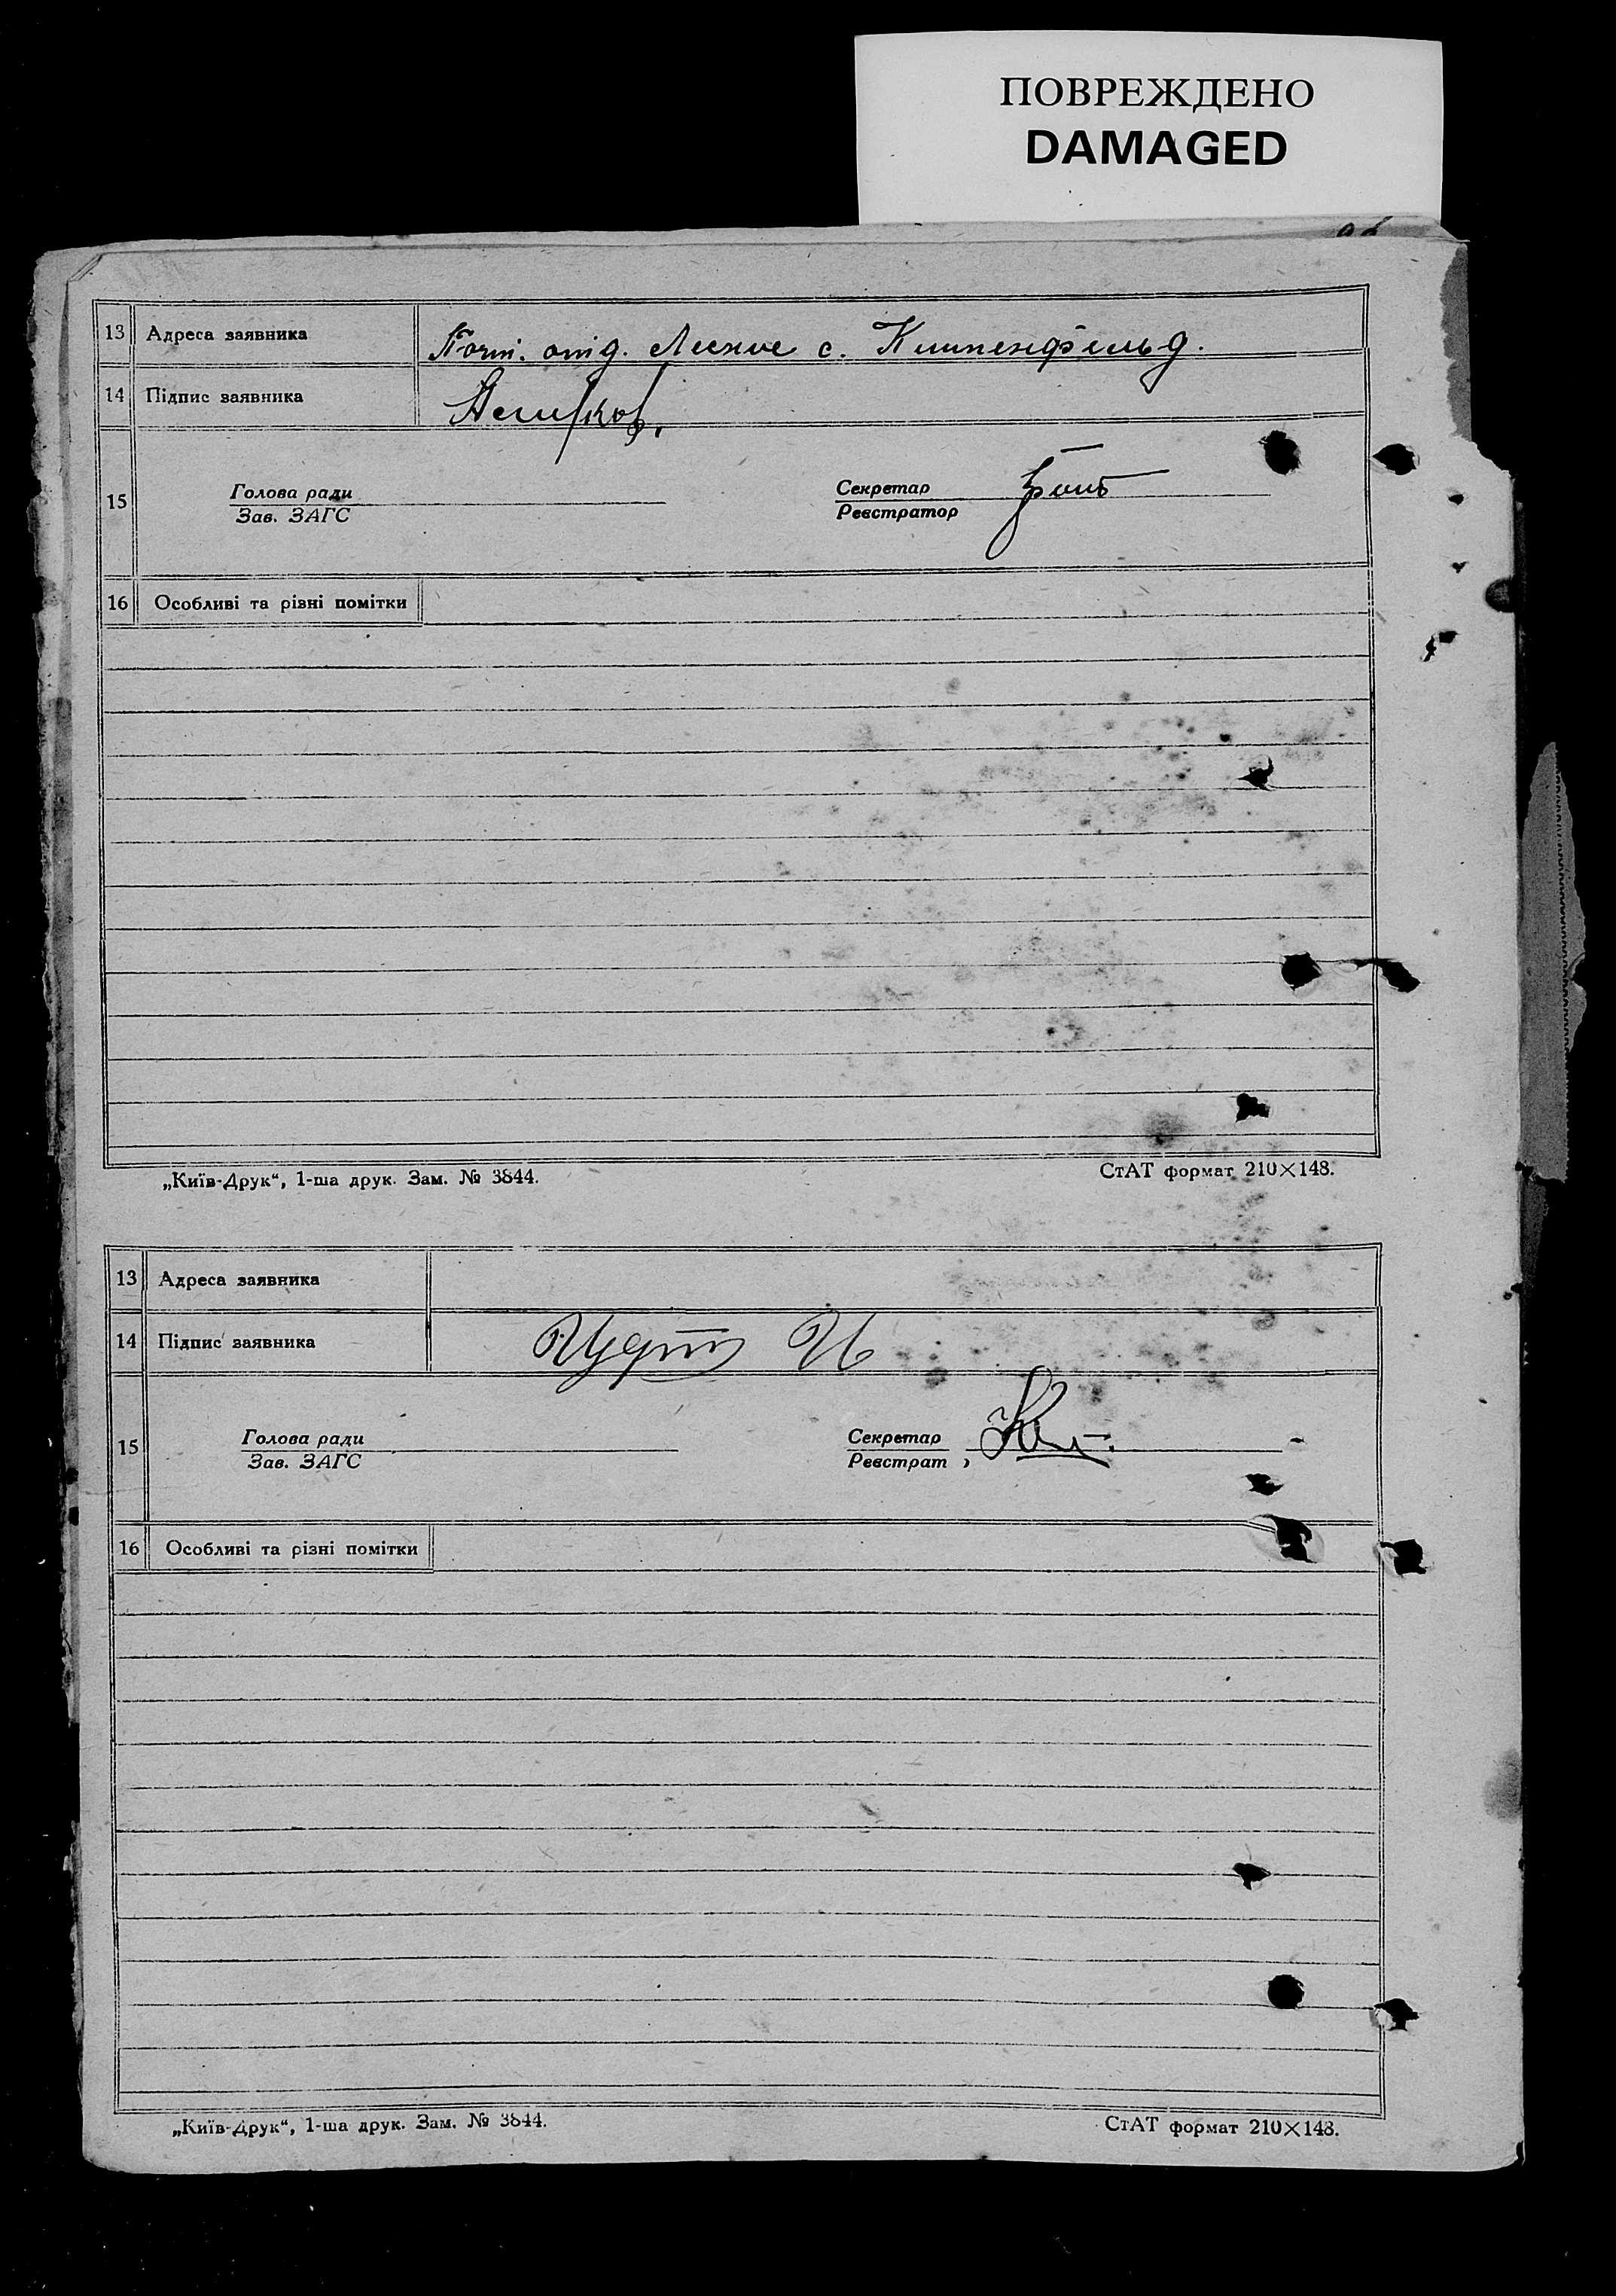 ПОВРЕЖДЕНО
DAMAGED
13 Адреса заявника Почт. отд. Лесное с. Клипенфельд.
14 Підпис заявника
15 Голова ради Секретар
Зав. ЗАГС Реєстратор
16 Особливі та різні помітки
„Київ-Друк“, 1-ша друк. Зам. № 3844. СтАТ формат 210×148.
13 Адреса заявника
14 Підпис заявника
15 Голова ради Секретар
Зав. ЗАГС Реєстрат
16 Особливі та різні помітки
„Київ-Друк“, 1-ша друк. Зам. № 3844. СтАТ формат 210×148.